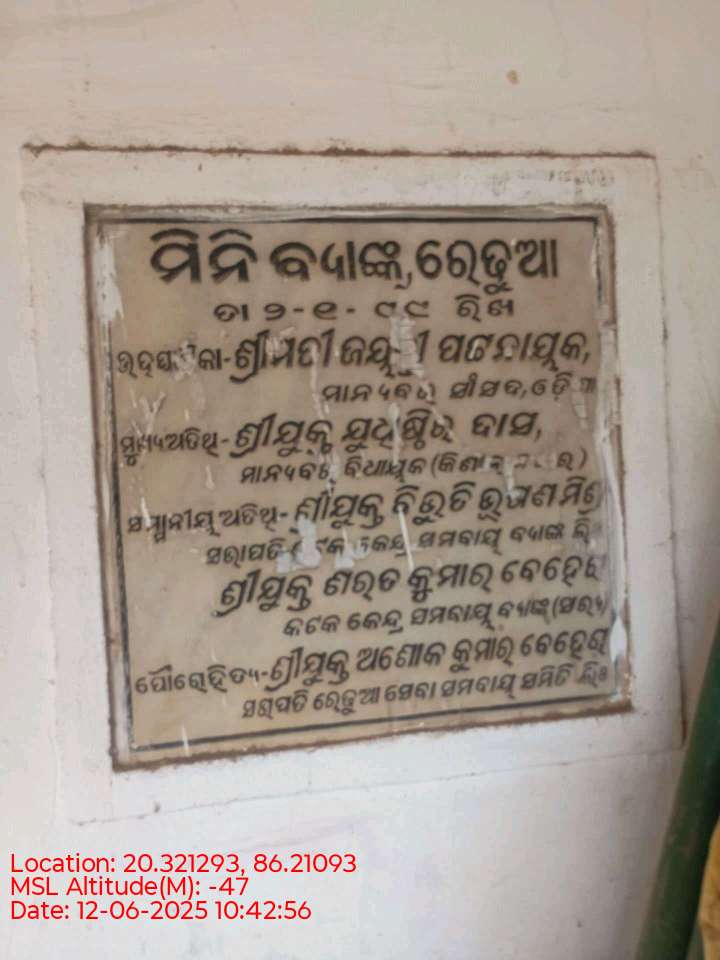 ମିନି ବ୍ୟାଙ୍କ, ରେଢୁଆ
ତା ୨-୧-୯୯ ରିଖ
ଉଦ୍‌ଘାଟିକା-ଶ୍ରୀମତୀ ଜୟନ୍ତୀ ପଟ୍ଟନାୟକ,
ମାନ୍ୟବର ସାଂସଦ, ଓଡ଼ିଶା
ମୁଖ୍ୟଅତିଥି-ଶ୍ରୀଯୁକ୍ତ ଯୁଧିଷ୍ଠିର ଦାସ,
ମାନ୍ୟବର ବିଧାୟକ (କିଶନନଗର)
ସମ୍ମାନୀୟ ଅତିଥି-ଶ୍ରୀଯୁକ୍ତ ବିଭୁତି ଭୂଷଣ ମିଶ୍ର
ସଭାପତି କଟକ କେନ୍ଦ୍ର ସମବାୟ ବ୍ୟାଙ୍କ ଲିଃ
ଶ୍ରୀଯୁକ୍ତ ଶରତ କୁମାର ବେହେରା
କଟକ କେନ୍ଦ୍ର ସମବାୟ ବ୍ୟାଙ୍କ (ସଭ୍ୟ)
ପୌରୋହିତ୍ୟ-ଶ୍ରୀଯୁକ୍ତ ଅଶୋକ କୁମାର ବେହେରା
ସଭାପତି ରେଢୁଆ ସେବା ସମବାୟ ସମିତି ଲିଃ
Location: 20.321293, 86.21093
MSL Altitude(M): -47
Date: 12-06-2025 10:42:56